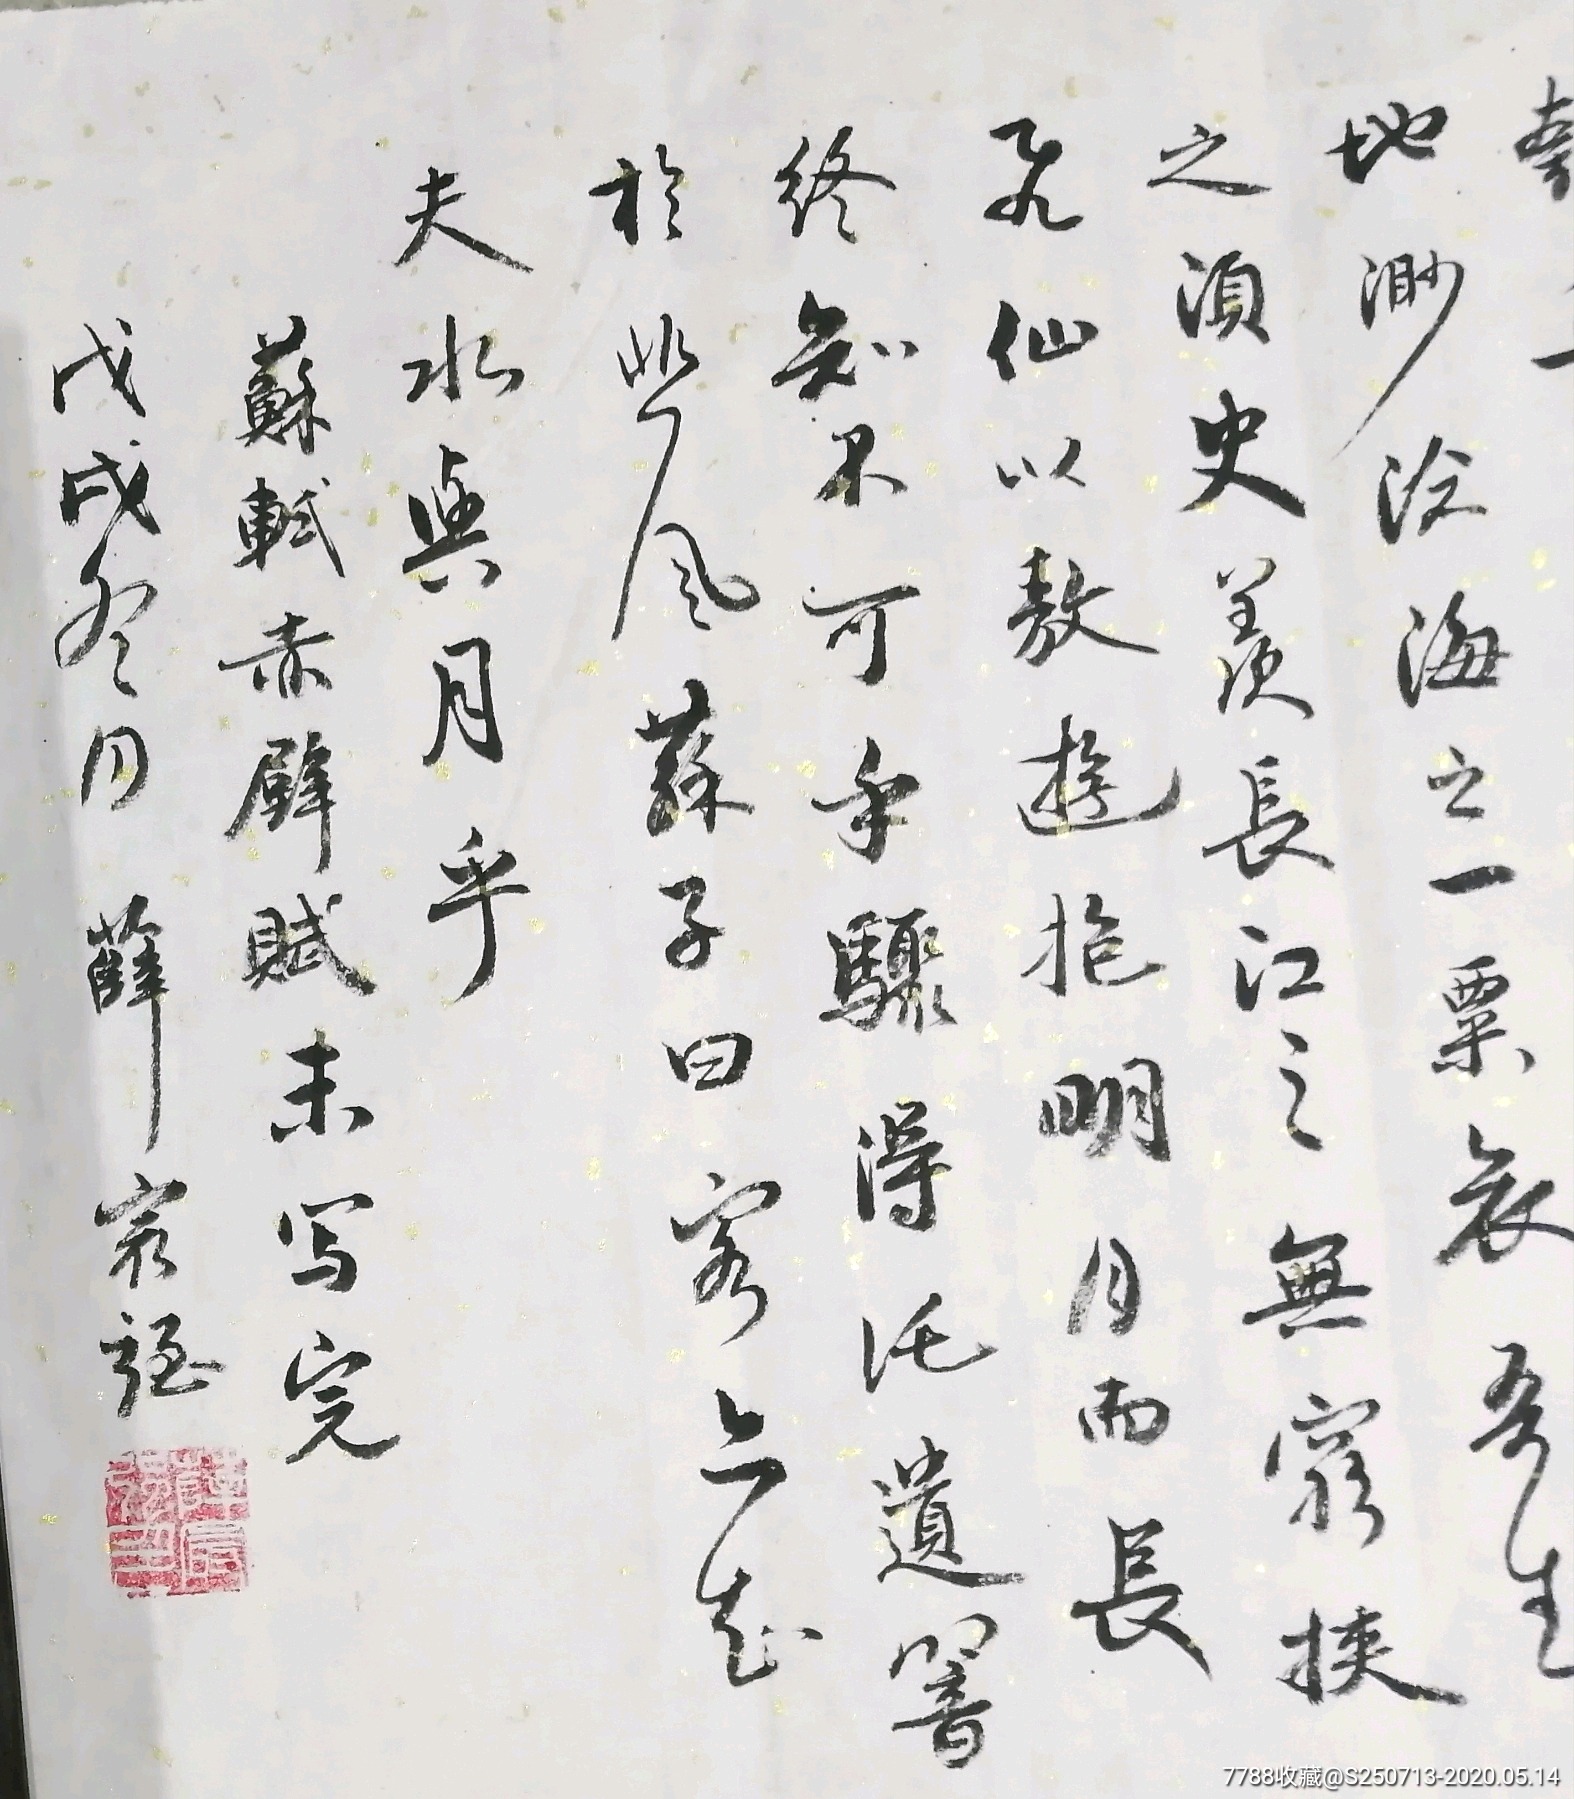 地渺滄海之一粟哀吾生
之須臾羨長江之無窮挾
飛仙以敖遊抱明月而長
終知不可乎驟得托遺響
於悲风蘇子曰客亦知
夫水與月乎
蘇軾赤壁賦未写完
戊戌冬月薛家強
7788收藏@S250713-2020.05.14